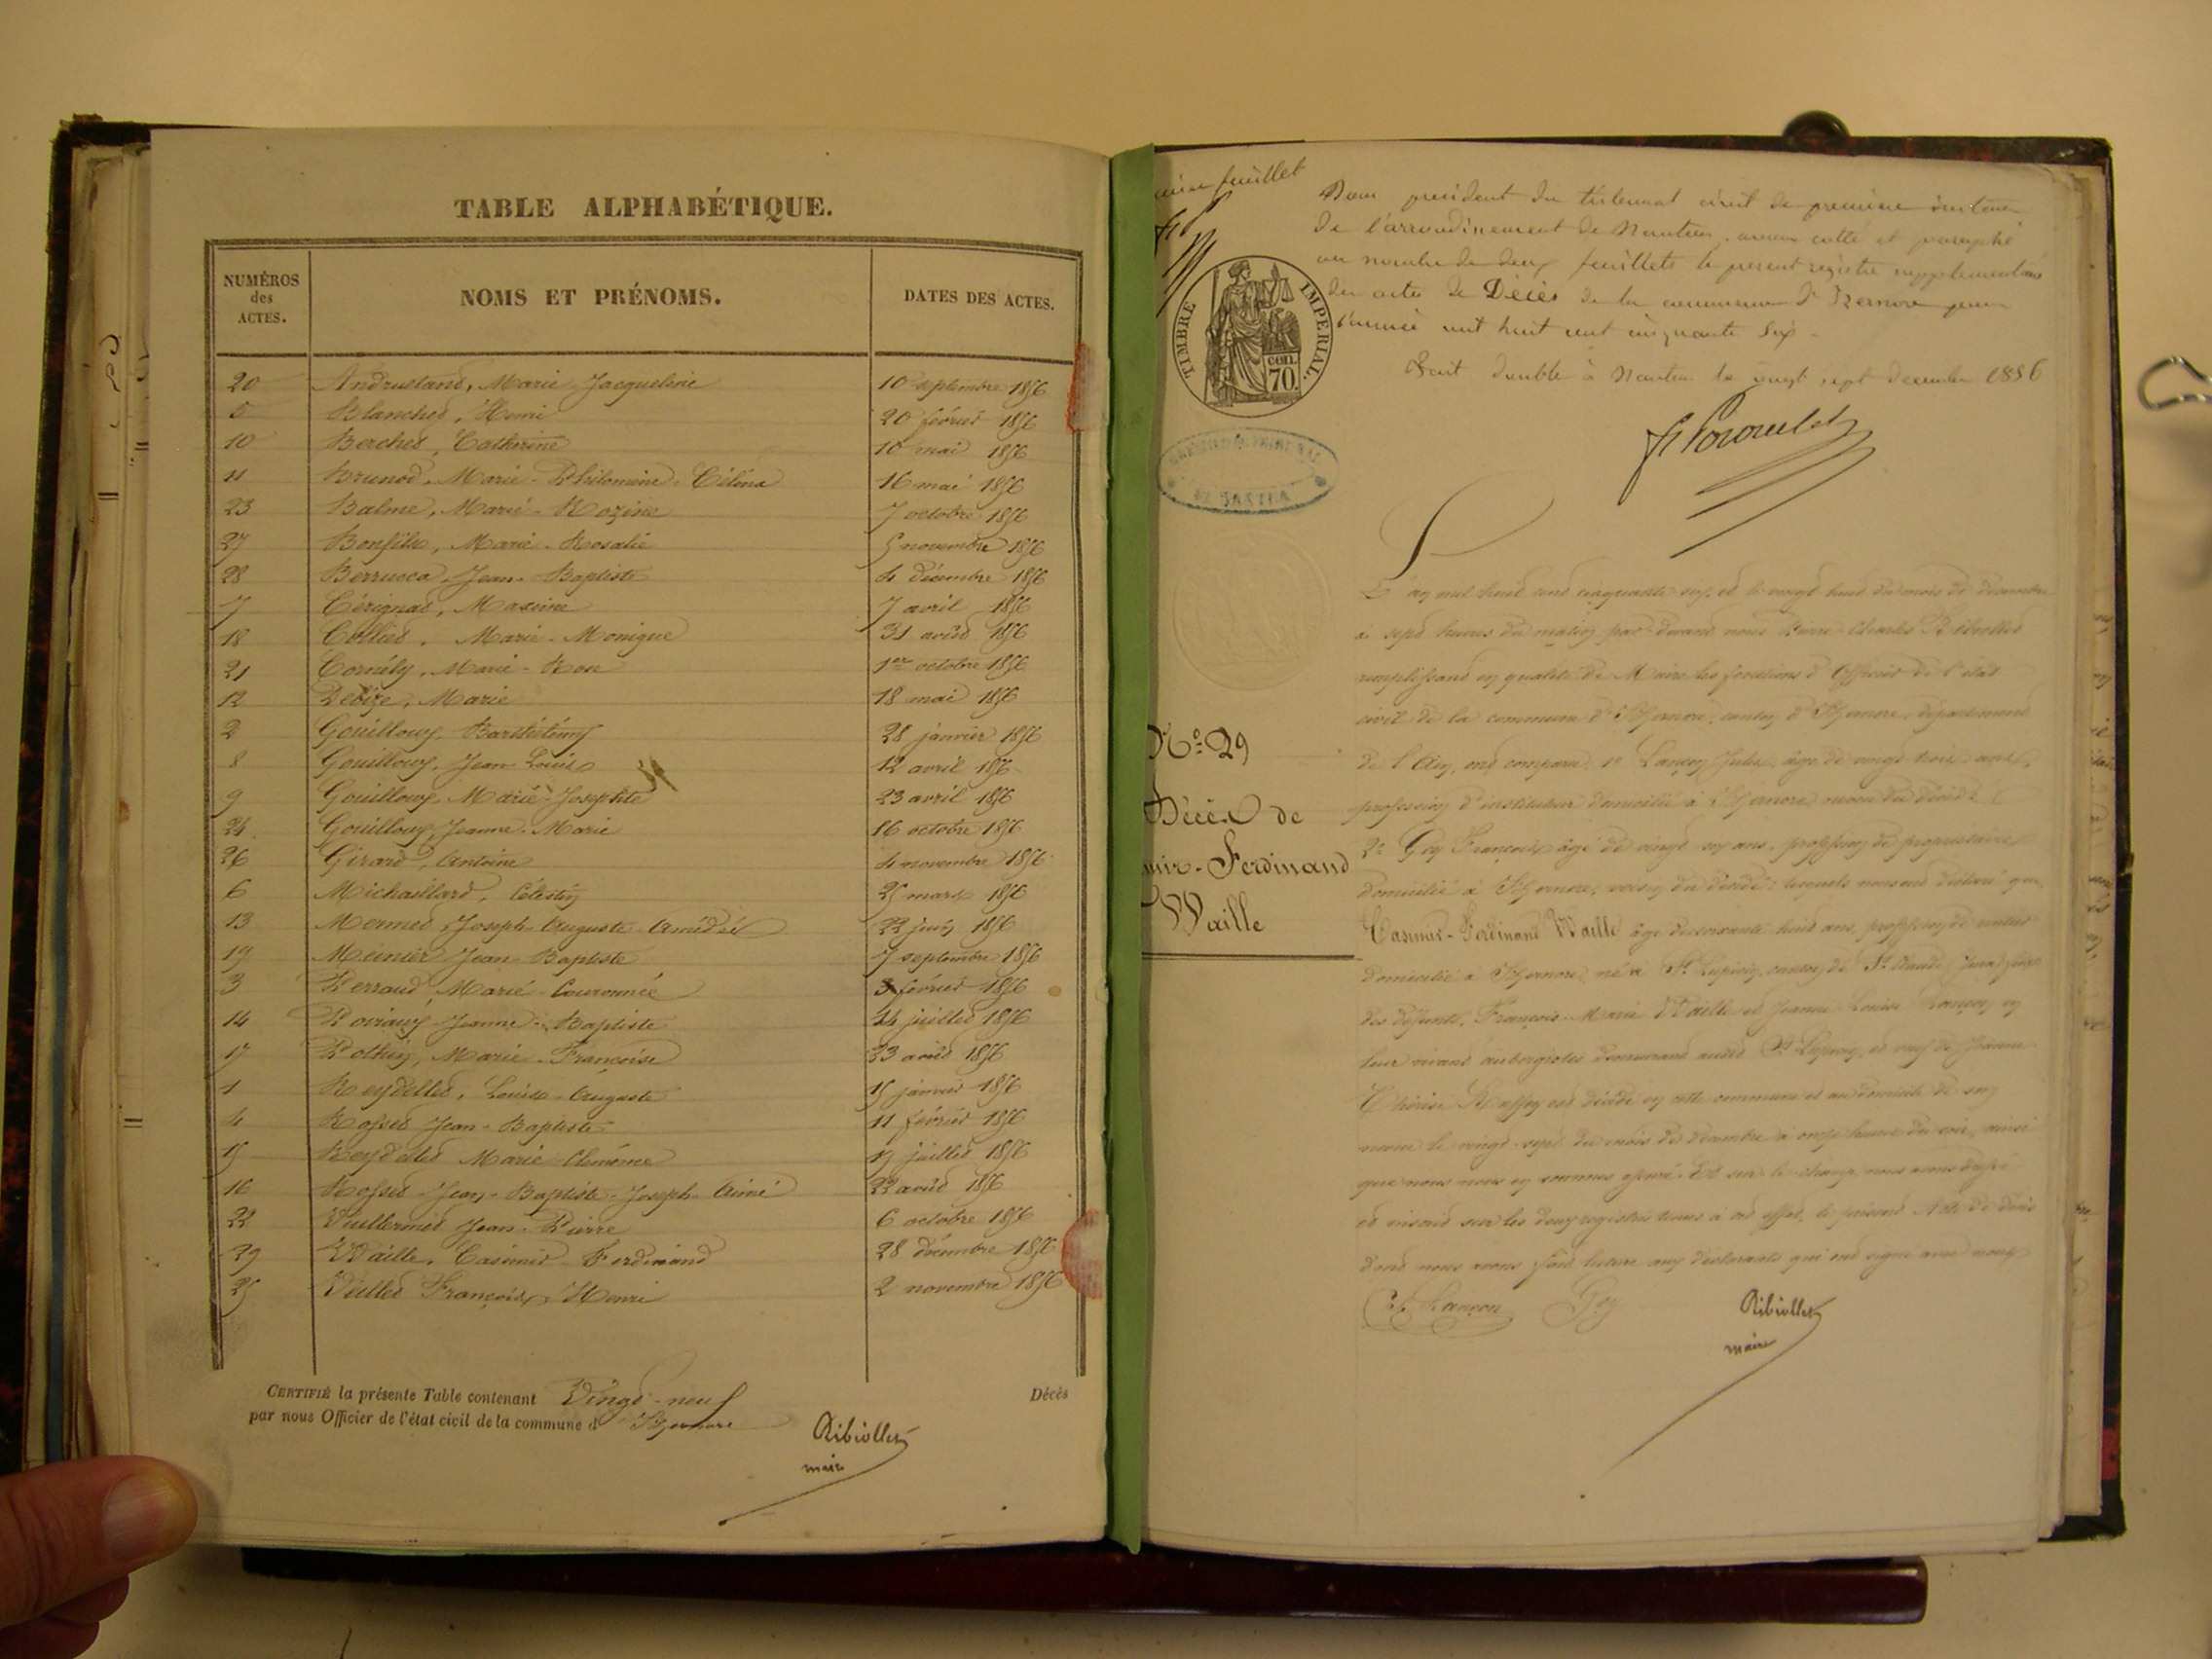 TABLE ALPHABÉTIQUE.
NUMÉROS des ACTES.
NOMS ET PRÉNOMS.
DATES DES ACTES.
20 Marie Jacqueline 10 septembre 1856
5 Blanchet, Henri 20 février 1856
10 Berchet, Catherine 10 mai 1856
11 Brunod, Marie-Philomène 16 mai 1856
23 Balme, Marie-Rozine 7 octobre 1856
27 Marie-Rosalie 5 novembre 1856
28 Berrucca, Jean-Baptiste 4 décembre 1856
7 Maxime 7 avril 1856
18 Collet, Marie-Monique 31 août 1856
21 Cornély, Marie-Rose 1er octobre 1856
12 Debize, Marie 18 mai 1856
2 Gouilloux, Barthélémy 28 janvier 1856
8 Gouilloux, Jean-Louis 12 avril 1856
9 Gouilloux, Marie-Josephte 23 avril 1856
24 Gouilloux, Jeanne-Marie 16 octobre 1856
26 Girard, Antoine 4 novembre 1856
6 Michaillard, Célestin 25 mars 1856
13 Mermet, Joseph-Auguste-Amédée 22 juin 1856
19 Meinier Jean-Baptiste 7 septembre 1856
3 Perraud, Marie-Couronnée 3 février 1856
14 Jeanne-Baptiste 24 juillet 1856
17 Pothin, Marie-Françoise 23 août 1856
1 Reydellet, Louis-Auguste 15 janvier 1856
4 Rosset Jean-Baptiste 11 février 1856
15 Reydellet Marie-Clémence juillet 1856
16 Rosset-Jean-Baptiste-Joseph-Aimé 22 août 1856
22 Vuillermet Jean-Pierre 6 octobre 1856
29 Waille, Casimir-Ferdinand 28 décembre 1856
25 François-Henri 2 novembre 1856
CERTIFIÉ la présente Table contenant Vingt-neuf Décès
par nous Officier de l'état civil de la commune d' Izernore
Ribiollet
maire
feuillet
Nous président du tribunal civil de première instance
de l'arrondissement de Nantua, avons cotté et paraphé
au nombre de deux feuillets le présent registre supplémentaire
des actes de Décès de la commune d'Izernore pour
l'année mil huit cent cinquante six.
Fait double à Nantua le vingt sept décembre 1856
TIMBRE IMPERIAL.
CEN. 70.
L'an mil huit cent cinquante six, et le vingt huit du mois de décembre
à sept heures du matin, par devant nous Pierre-Charles Ribiollet
remplissant en qualité de Maire les fonctions d'Officier de l'état
civil de la commune d'Izernore, canton d'Izernore, département
de l'Ain, ont comparu: 1° Lançon, Jules, âgé de vingt trois ans,
profession d'instituteur domicilié à Izernore, neveu du décédé
2° Goy François âgé de vingt un ans, profession de propriétaire
domicilié à Izernore, voisin du décédé: lesquels nous ont déclaré que
Casimir-Ferdinand Waille âgé de soixante huit ans, profession de
domicilié à Izernore, né à St Lupicin, canton de St Claude Jura,
des défunts, François-Marie Waille et Jeanne-Louise Lançon, en
leur vivant aubergistes demeurant audit St Lupicin, et veuf de Jeanne
Thérèse est décédé en cette commune et au domicile de son
neveu le vingt-sept du mois de décembre à onze heures du soir, ainsi
que nous nous en sommes assuré. Et sur le champ, nous avons dressé
et inscrit sur les deux registres tenus à cet effet, le présent Acte de décès
dont nous avons fait lecture aux déclarants qui ont signé avec nous
N° 29
Décès de
Ferdinand
Waille
Lançon Goy Ribiollet
maire